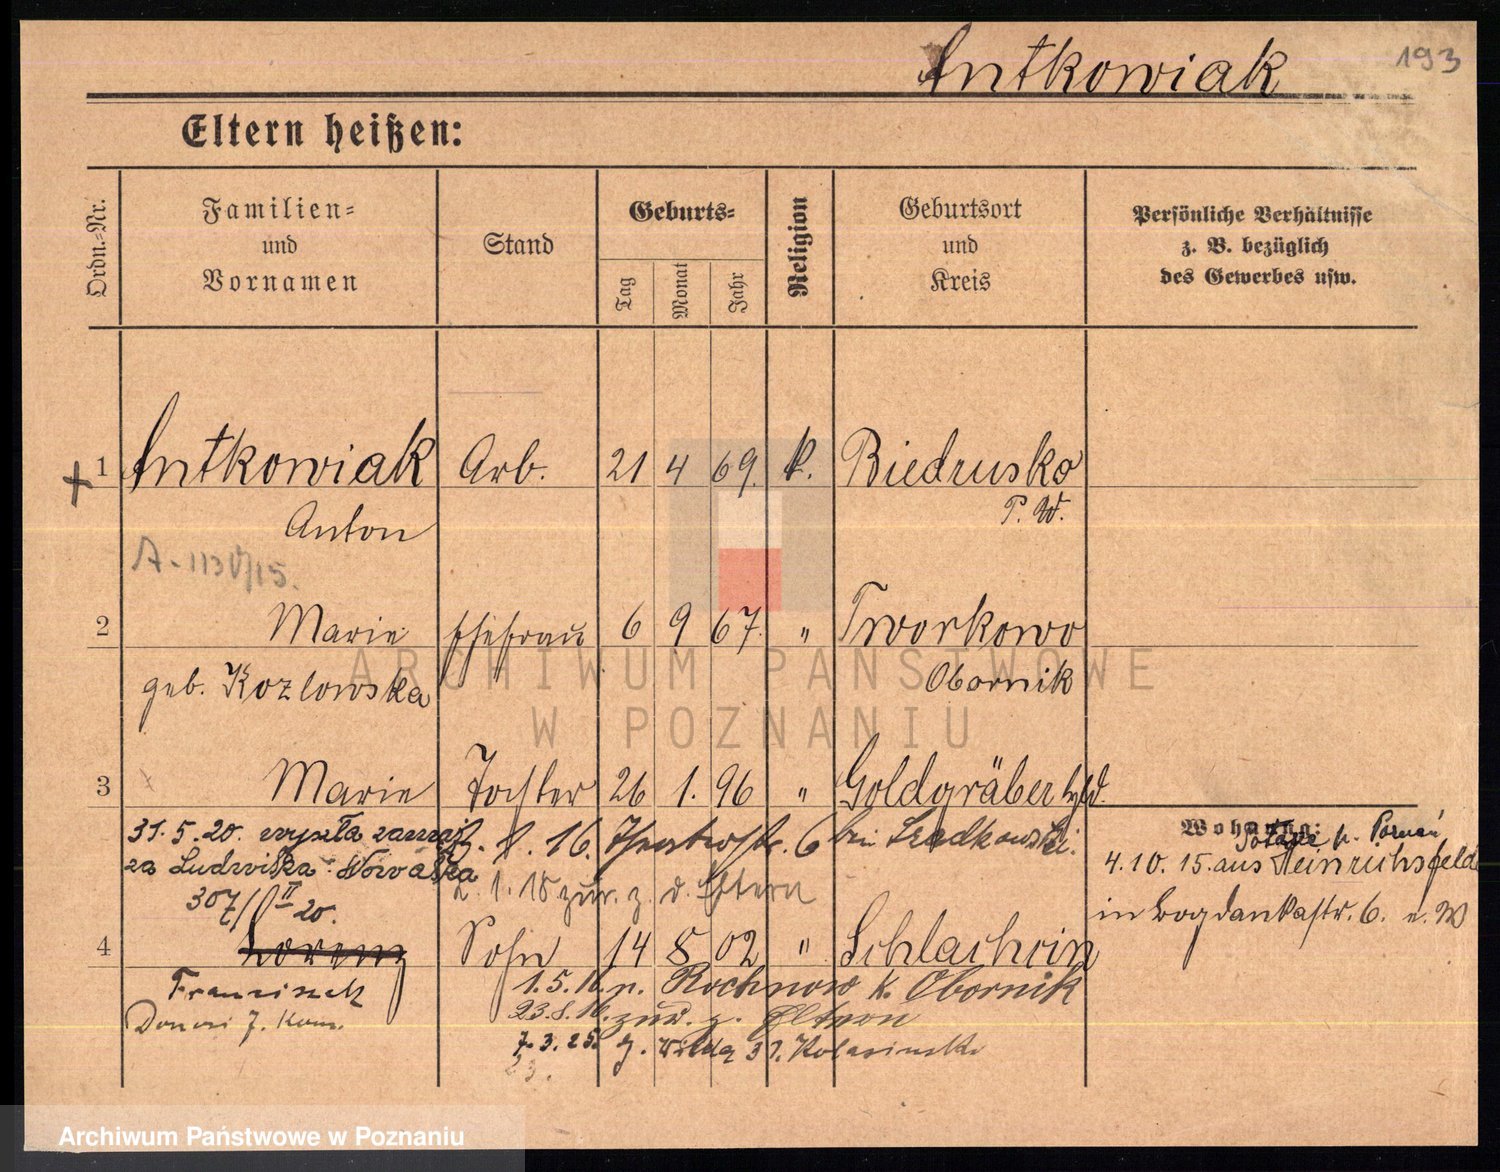 Antkowiak
193
Eltern heißen:
Ordn.-Nr.
Familien-
und
Vornamen
Stand
Geburts-
Tag
Monat
Jahr
Religion
Geburtsort
und
Kreis
Persönliche Verhältnisse
z. B. bezüglich
des Gewerbes usw.
1 Antkowiak Arb. 21 4 69. k. Biedrusko
Anton P. W.
2 Marie Ehefrau 6 9 67. " Tworkowo
geb. Kozlowska Obornik
3 Marie Tochter 26 1. 96 " Goldgräber
31.5.20. wyszła zamąż
16. Theaterstr. 6 bei
za Ludwika Nowaka
2. 1. 18 zur. z. d. Eltern
307/
20.
Wohnung:
p. Poznań
4.10.15. aus Heinrichsfelde
in Bogdankastr. 6.
4 Lorenz Sohn 14 8 02 " Schlachcin
Franzisek
1.5.16. n. Rochnowo k. Obornik
23.8.16. zur. z. Eltern
Donosi
7.3.25.
31.
ARCHIWUM PAŃSTWOWE
W POZNANIU
Archiwum Państwowe w Poznaniu